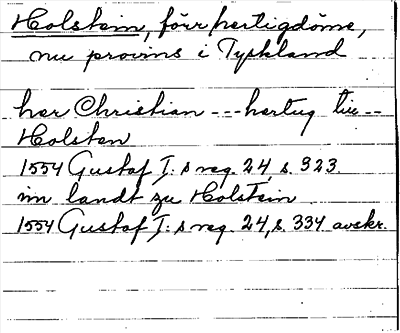 Holstein, förr hertigdöme,
nu provins i Tyskland
her Christian --- hertug tiil --
Holsten
1554 Gustaf I:s reg. 24, s. 323.
im landt zu Holstein
1554 Gustaf I:s reg. 24, s. 334 avskr.